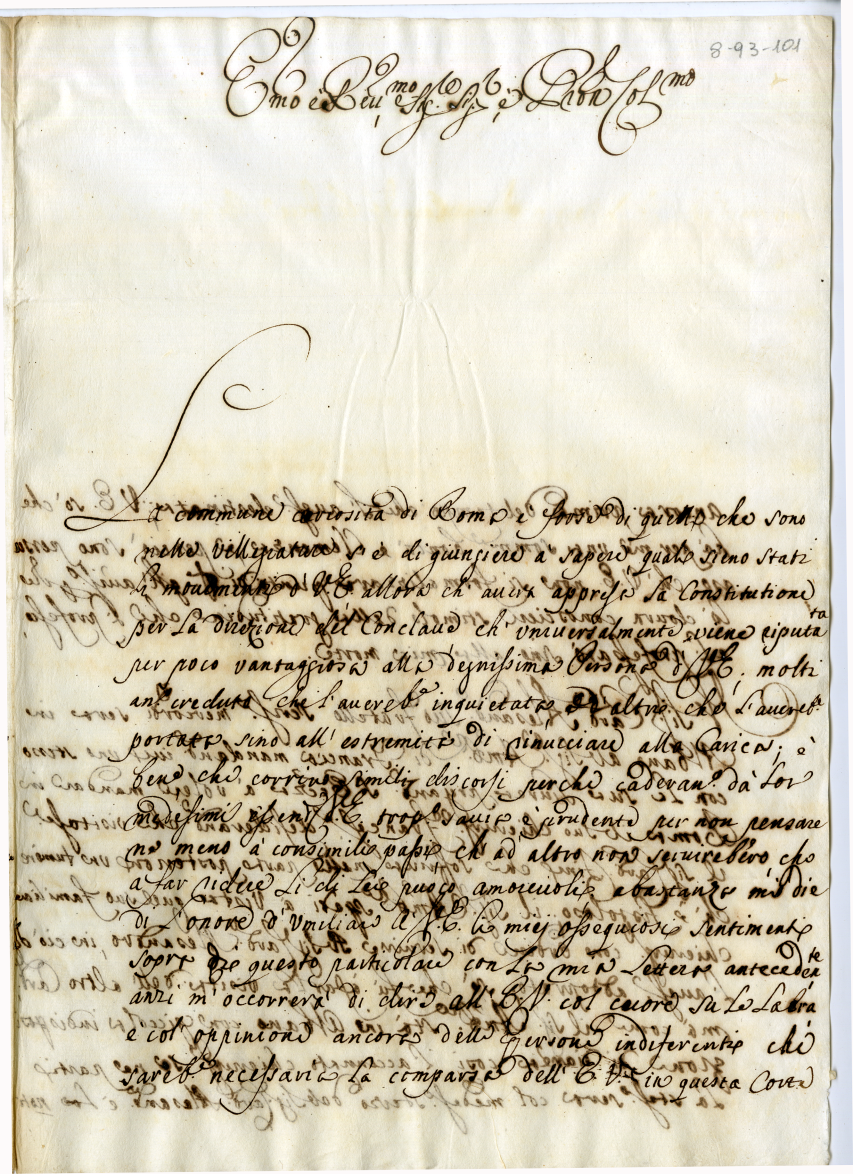 8-93-101
Emo e Reu.mo Sig.re Sig.re, e Pron Col.mo
La commune curiosità di Roma e forse di quelli che sono
nelle Villegiature s'è di giungere a sapere quali sieno stati
li mouimenti d'V.E. allora ch'auerà appresa la Constitutione
per La direzione del Conclaue ch'vniuersalmente viene riputa.ta
per poco vantaggiosa alla degnissima Persona d'V.E; molti
an creduto che l'auereb.e inquietata ed altri che L'auereb.e
portata sino all'estremità di rinucciare alla Carica; è
bene che corrino simili discorsi perche caderan.o dà Lor
medesimi essen. V.E. trop. sauia e prudente per non pensare
ne meno à consimili passi ch'ad'altro non seruirebero che
a far ridere Li di Lei puoco amoreuoli abastanza mi die
di L'onore d'vmiliare all' V.E. li miej ossequiosi sentimenti
sopra di questo particolare con La mia Lettera anteceden.te
anzi m'occorrerà di dire all'E.V. col cuore su Le Labra
e col'oppinione ancora delle Persone indiferenti che
sareb.e necessaria La comparsa dell'E.V. in questa Corte